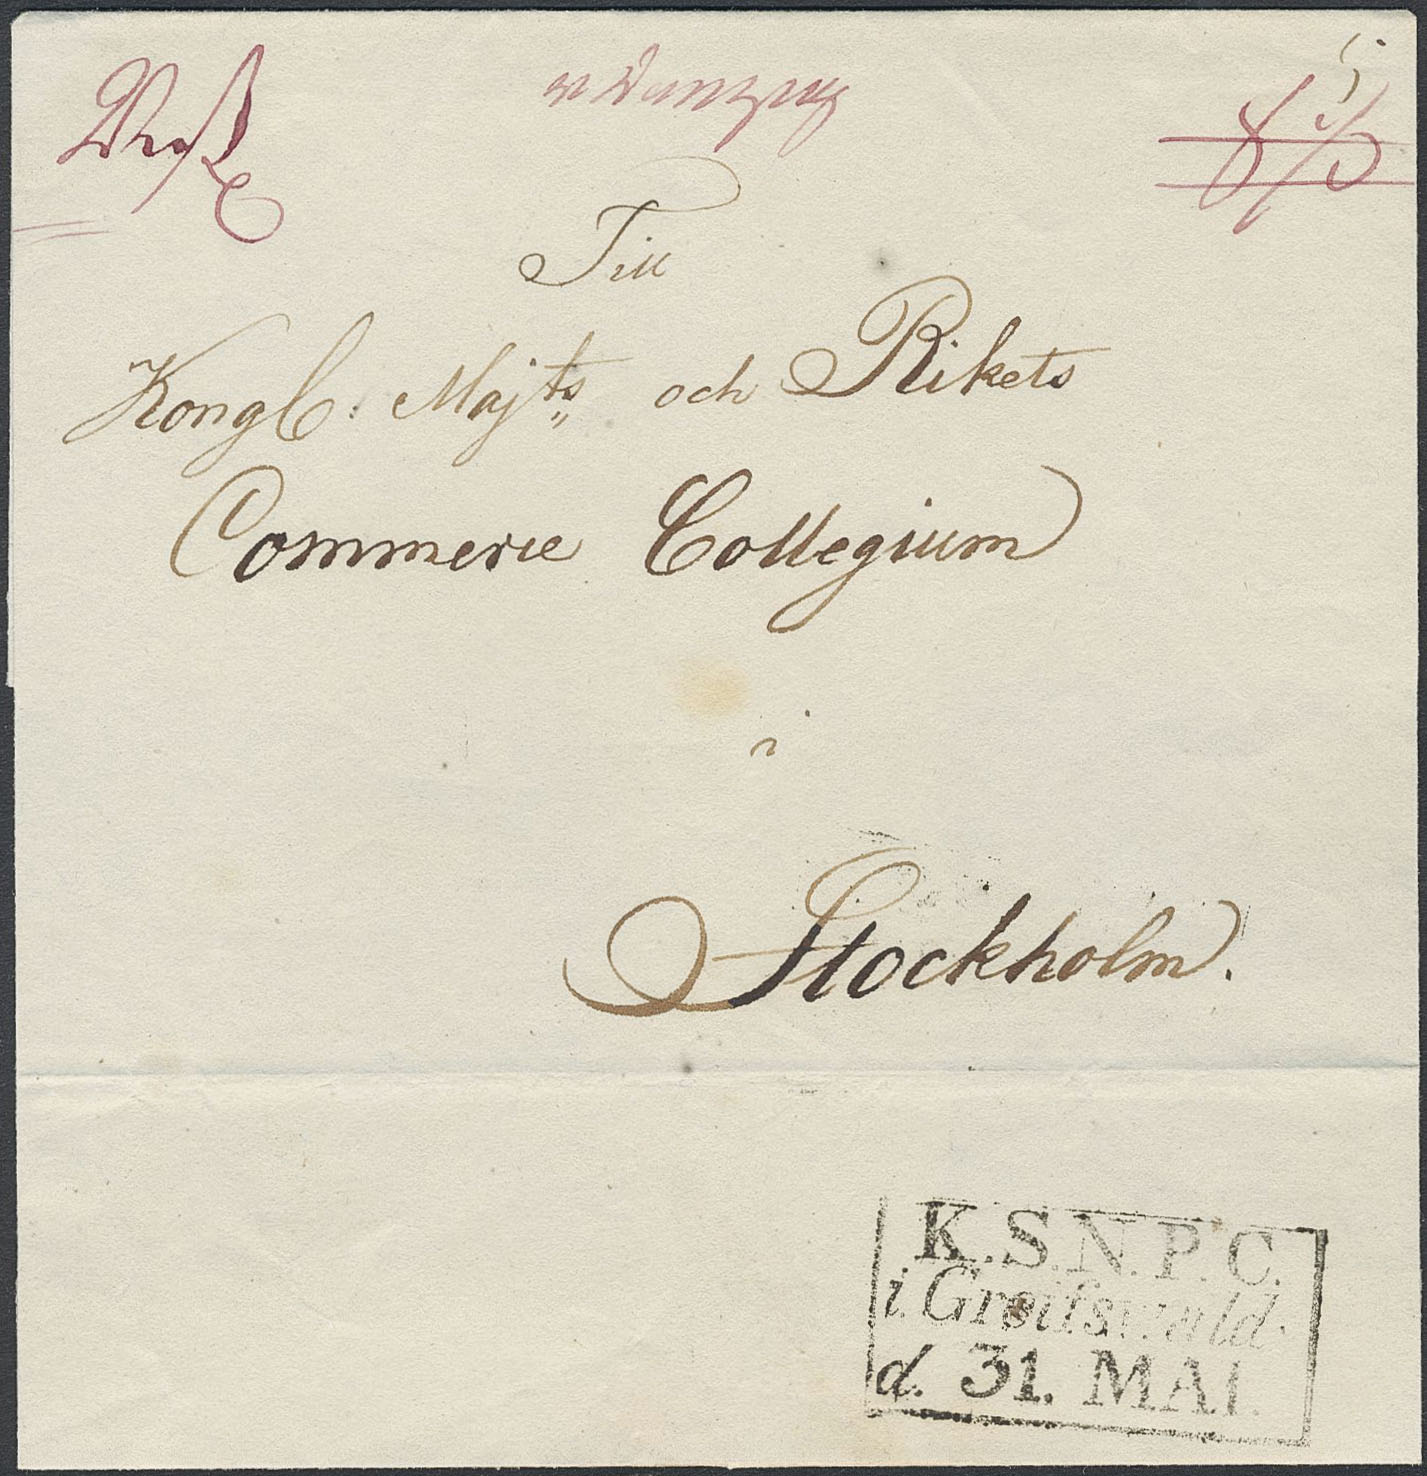 v Danzig
Till
Kongl: Majts och Rikets
Commerce Collegium
i
Stockholm.
K.S.N.P.C.
i. Greifswald
d. 31. MAI.